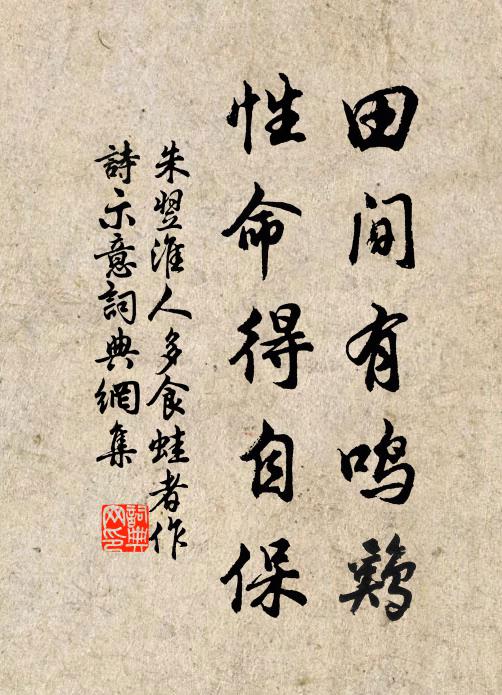 田间有鸣鷄
性命得自保
朱翌淮人多食蛙者作
詩示意詞典網集
詞典
网印